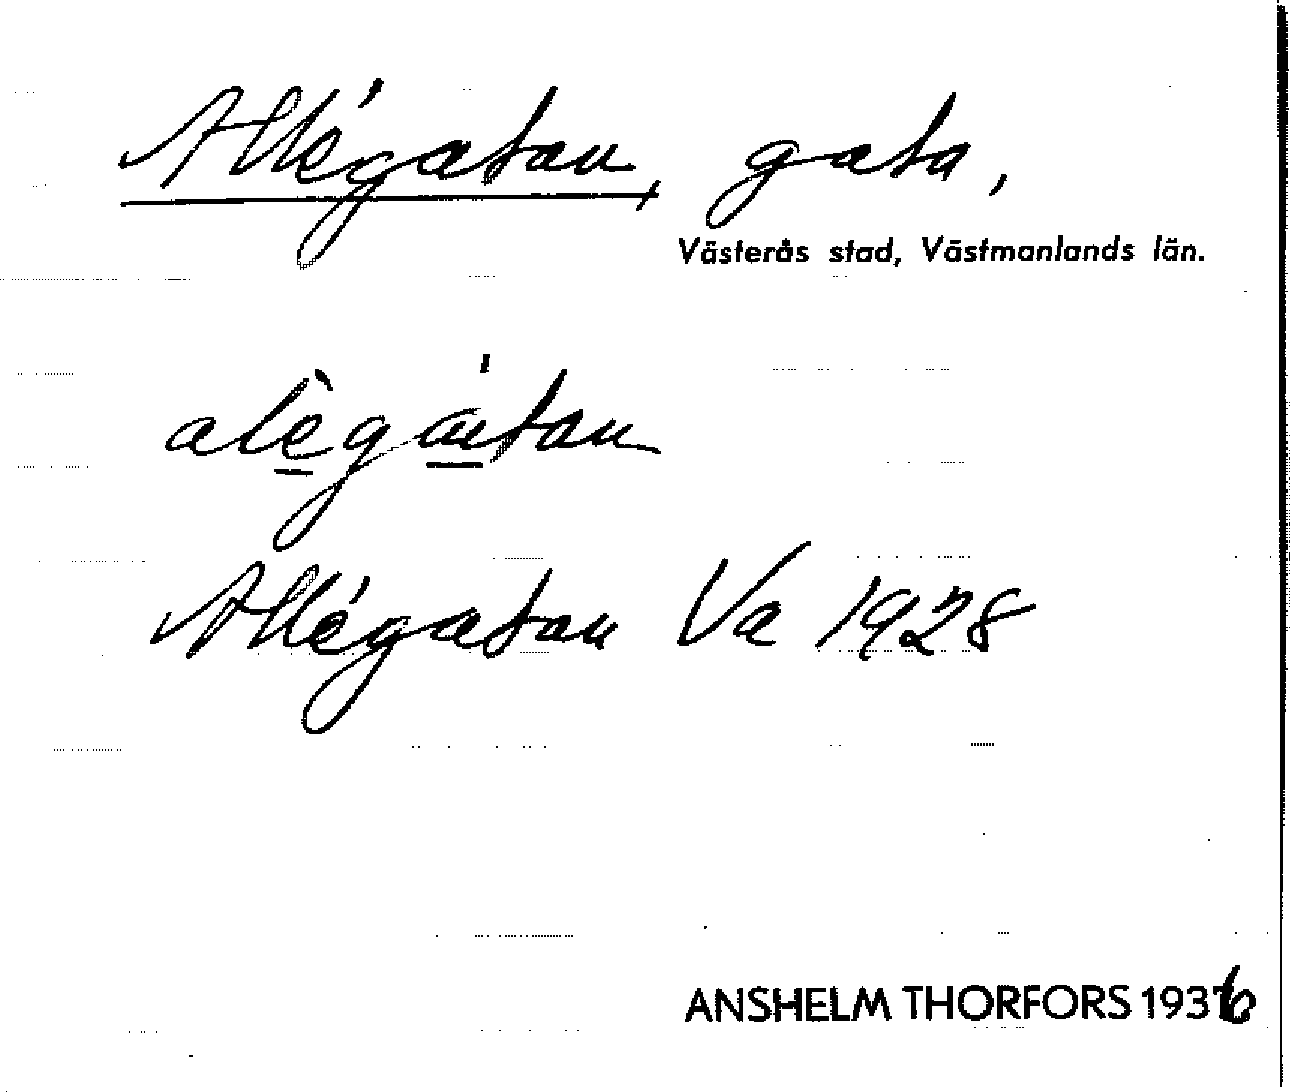 Allégatan, gata,
Västerås stad, Västmanlands län.
alègátan
Allégatan Va 1928
ANSHELM THORFORS 1936